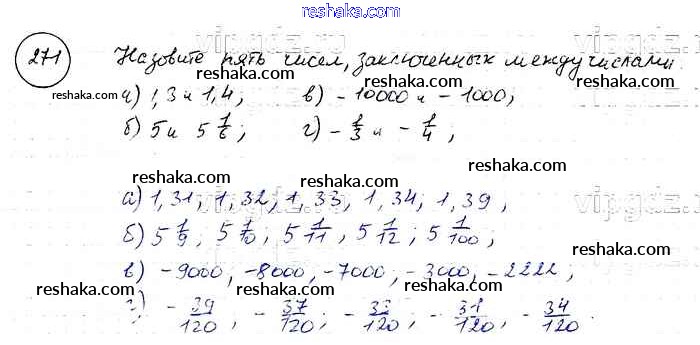 reshaka.com
271 Назовите пять чисел, заключенных между числами.
reshaka.com reshaka.com reshaka.com
а) 1,3 и 1,4; в) -10000 и -1000;
б) 5 и 5 1/6; г) -1/3 и -1/4;
vipgdz
reshaka.com reshaka.com reshaka.com
а) 1,31; 1,32; 1,33; 1,34; 1,39,
reshaka.com reshaka.com reshaka.com
б) 5 1/9; 5 1/10; 5 1/11, 5 1/12; 5 1/100;
reshaka.com reshaka.com
в) -9000, -8000, -7000, -3000, -2222,
reshaka.com reshaka.com reshaka.com
г) -39/120, -37/120, -33/120, -31/120, -34/120.
reshaka.com reshaka.com